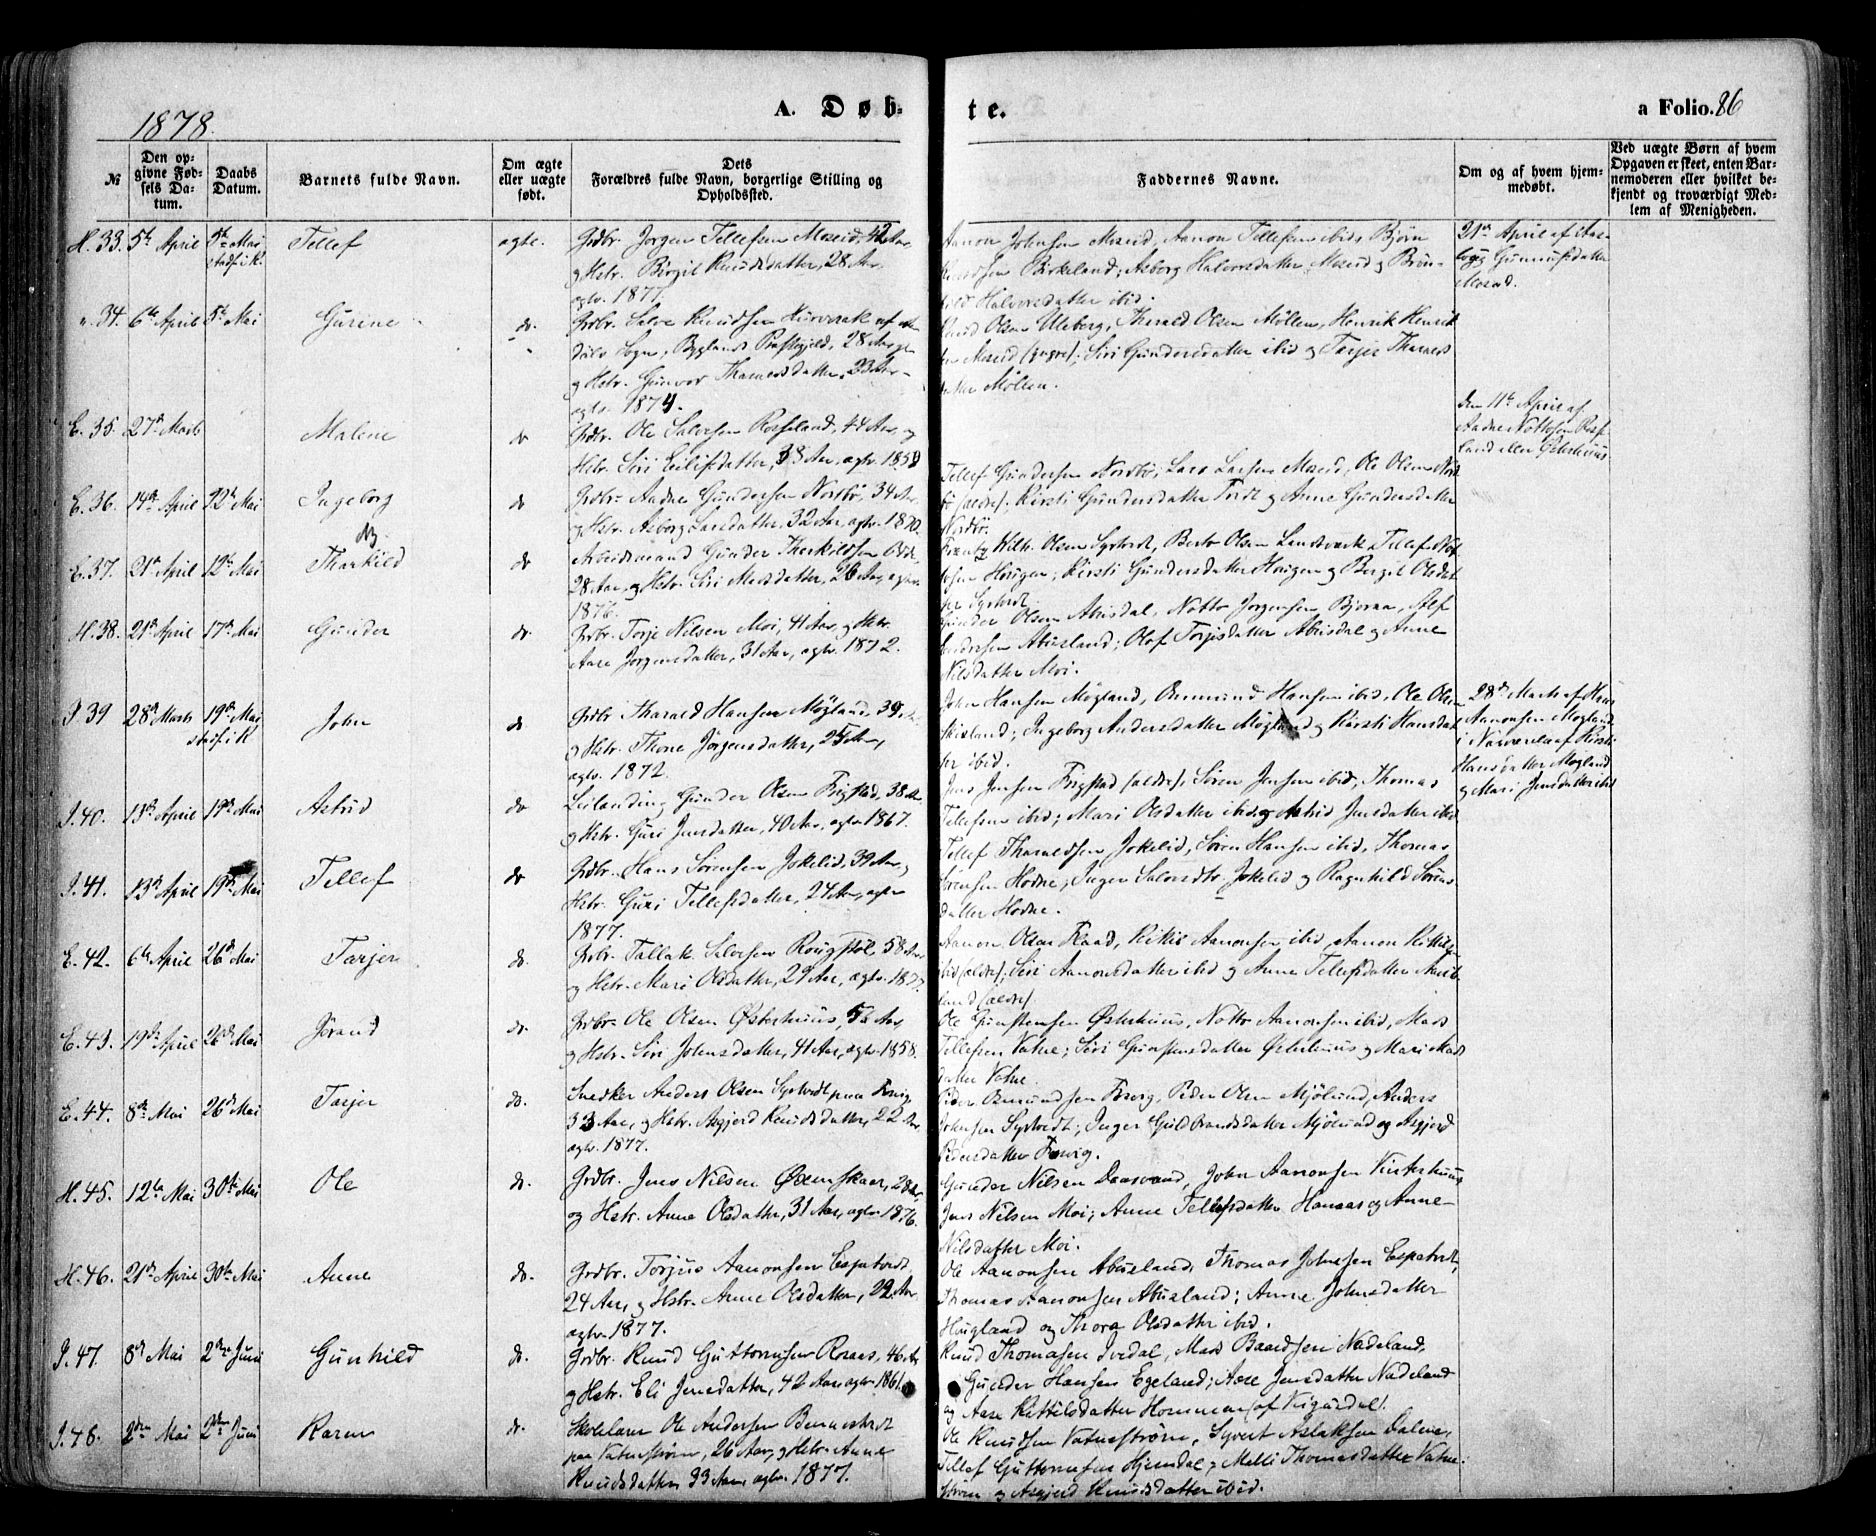 1878.
A. Døb-
te.
a Folio. 86
№
Den op-
givne Fød-
sels Da-
tum.
Daabs
Datum.
Barnets fulde Navn.
Om ægte
eller uægte
født.
Dets
Forældres fulde Navn, borgerlige Stilling og
Opholdssted.
Faddernes Navne.
Om og af hvem hjem-
medøbt.
Ved uægte Børn af hvem
Opgaven er skeet, enten Bar-
nemoderen eller hvilket be-
kjendt og troværdigt Med-
lem af Menigheden.
H. 33. 5te April 5te Mai Tellef ægte.
stadf. i K.
Grdbr. Jørgen Tellefsen Moseid, 42 Aar,
og Hstr. Birgit Knudsdatter, 28 Aar,
agtv. 1877.
Aanon Johnsen Moseid, Aanon Tellefsen ibid, Bjørn
Knudsen Birkeland; Asborg Halvorsdatter Moseid og Brøn-
hild Halvorsdatter ibid.
21de April af Aas-
borg Gunnufsdatter
Moseid.
" 34. 6te April 5te Mai Gurine do.
Grdbr. Salve Knudsen
Sogn, Byglands Præstegjeld, 28 Aar,
og Hstr. Gunvor Tharaldsdatter, 23 Aar
agtv. 1874.
Knud Olsen Uleberg, Tharald Olsen Møllen, Henrik Henrik-
sen Moseid (yngre); Siri Gundersdatter ibid og Tarjer Tharalds-
datter Møllen.
E. 35. 27de Marts Malene do
Grdbr. Ole Salvesen Rosseland, 44 Aar, og
Hstr. Siri Eilifsdatter, 38 Aar, agtv. 1858
den 11te April af
Aadne Nottosen Ross-
land eller Østerhuus
E. 36. 14de April 12te Mai Ingeborg do
Grdbr. Aadne Gundersen Nordbø, 34 Aar,
og Hstr. Asborg Larsdatter, 32 Aar, agtv. 1870.
Tellef Gundersen Nordbø, Lars Larsen Moseid, Ole Olsen Nord-
bø (ældre); Kirsti Gundersdatter Tvedt og Anne Gundersdatter
Nordbø.
E. 37. 21de April 12te Mai Tharkild do
Arbeidsmand Gunder Therkildsen
28 Aar, og Hstr. Siri Madsdatter, 26 Aar, agtv.
1876.
Frantz Wilh. Olsen Syrtveit, Berto Olsen Landsverk, Tellef
Hougen; Kirsti Gundersdatter Hougen og Bergit Olsdat-
ter Syrtveit.
H. 38. 21de April 17de Mai Gunder do.
Grdbr. Torje Nilsen Moi, 41 Aar, og Hstr.
Aase Jørgensdatter, 31 Aar, agtv. 1872.
Gunder Olsen Abusdal, Notto Jørgensen Bjoraa,
Andersen Abusland; Olaf Torjusdatter Abusdal og Anne
Nilsdatter Moi.
I. 39 28de Marts 19de Mai John do
stadf. i K
Grdbr. Tharald Hansen Møgland, 39 Aar,
og Hstr. Thone Jørgensdatter, 25 Aar,
agtv. 1872.
John Hansen Møgland, Osmund Hansen ibid, Ole Olsen
Skisland; Ingeborg Andersdatter Møgland og Kirsti Hansdat-
ter ibid.
28de Marts af Hans
Aanonsen Møgland
i Nærværelse af Kirsti
Hansdatter Møgland
og Mari Jensdatter ibid
I. 40. 13de April 19de Mai Astrid do
Leilænding Gunder Olsen Frigstad, 38 Aar,
og Hstr. Guri Jensdatter, 40 Aar, agtv. 1867.
Jens Jensen Frigstad (ældre), Søren Jensen ibid, Thomas
Tellefsen ibid; Mari Olsdatter ibid og Astrid Jensdatter ibid
I. 41. 13de April 19de Mai Tellef do
Grdbr. Hans Sørensen Jokelid, 39 Aar,
Hstr. Guri Tellefsdatter, 24 Aar, agtv.
1877.
Tellef Tharaldsen Jokelid, Søren Hansen ibid, Thomas
Sørensen Hodne; Inger Salvesdtr. Jokelid og Ragnhild Sørens-
datter Hodne.
E. 42. 6te April 26de Mai Tarjer do.
Grdbr. Tallak Salvesen Rougstøl, 58 Aar,
og Hstr. Mari Olsdatter, 29 Aar, agtv. 1877.
Aanon Olsen Flaad, Kittil Aanonsen ibid, Aanon Kittils-
ibid (ældre); Siri Aanonsdatter ibid og Anne Tellefsdatter
land (ældre)
E. 43. 19de April 26de Mai Jørand do.
Grdbr. Ole Olsen Østerhuus, 56 Aar,
og Hstr. Siri Johnsdatter, 41 Aar, agtv. 1858.
Ole Gunstensen Østerhuus, Notto Aanonsen ibid, Mads
Tellefsen Vatne; Siri Gunstensdatter Østerhuus og Mari Mads-
datter Vatne.
E. 44. 8de Mai 26de Mai Tarjer do.
Snedker Anders Olsen Syrtveit paa Fosvig,
33 Aar, og Hstr. Asgjerd Knudsdatter, 22 Aar,
agtv. 1877.
Peder Osmundsen Fosvig, Peder Olsen Mjølund, Anders
Johnsen Syrtveit; Inger Guldbrandsdatter Mjølund og Asgjerd
Pedersdatter Fosvig.
H. 45. 12te Mai 30te Mai Ole do.
Grdbr. Jens Nilsen Øxenskaar, 28 Aar,
og Hstr. Anne Olsdatter, 31 Aar, agtv. 1876.
Gunder Nilsen Daasvand, John Aanonsen Kirkehuus,
Jens Nilsen Moi; Anne Tellefsdatter Hanaas og Anne
Nilsdatter Moi.
H. 46. 21de April 30te Mai Anne do.
Grdbr. Torjus Aanonsen Espetveit,
24 Aar, og Hstr. Anne Olsdatter, 22 Aar,
agtv. 1877.
Ole Aanonsen Abusland, Thomas Johnsen Espetveit,
Thomas Aanonsen Abusland; Anne Johnsdatter
Haugland og Thora Olsdatter ibid.
I. 47. 8de Mai 2den Juni Gunhild do.
Grdbr. Knud Guttormsen Røsaas, 46 Aar
og Hstr. Eli Jensdatter, 42 Aar, agtv. 1861.
Knud Thomasen Ivedal, Mads Baardsen Nådeland,
Gunder Hansen Egeland; Aase Jensdatter Nådeland
og Aase Kittilsdatter Hommen (af Vigusdal).
I. 48. 2den Mai 2den Juni Karen do.
Skolelærer Ole Andersen
paa Vatnestrøm, 26 Aar, og Hstr. Anne
Knudsdatter, 33 Aar, agtv. 1877.
Ole Knudsen Vatnestrøm, Syvert Aslaksen Dalene,
Tellef Guttormsen Hjemdal; Melli Thomasdatter Vatne-
strøm og Asgjerd Knudsdatter ibid.